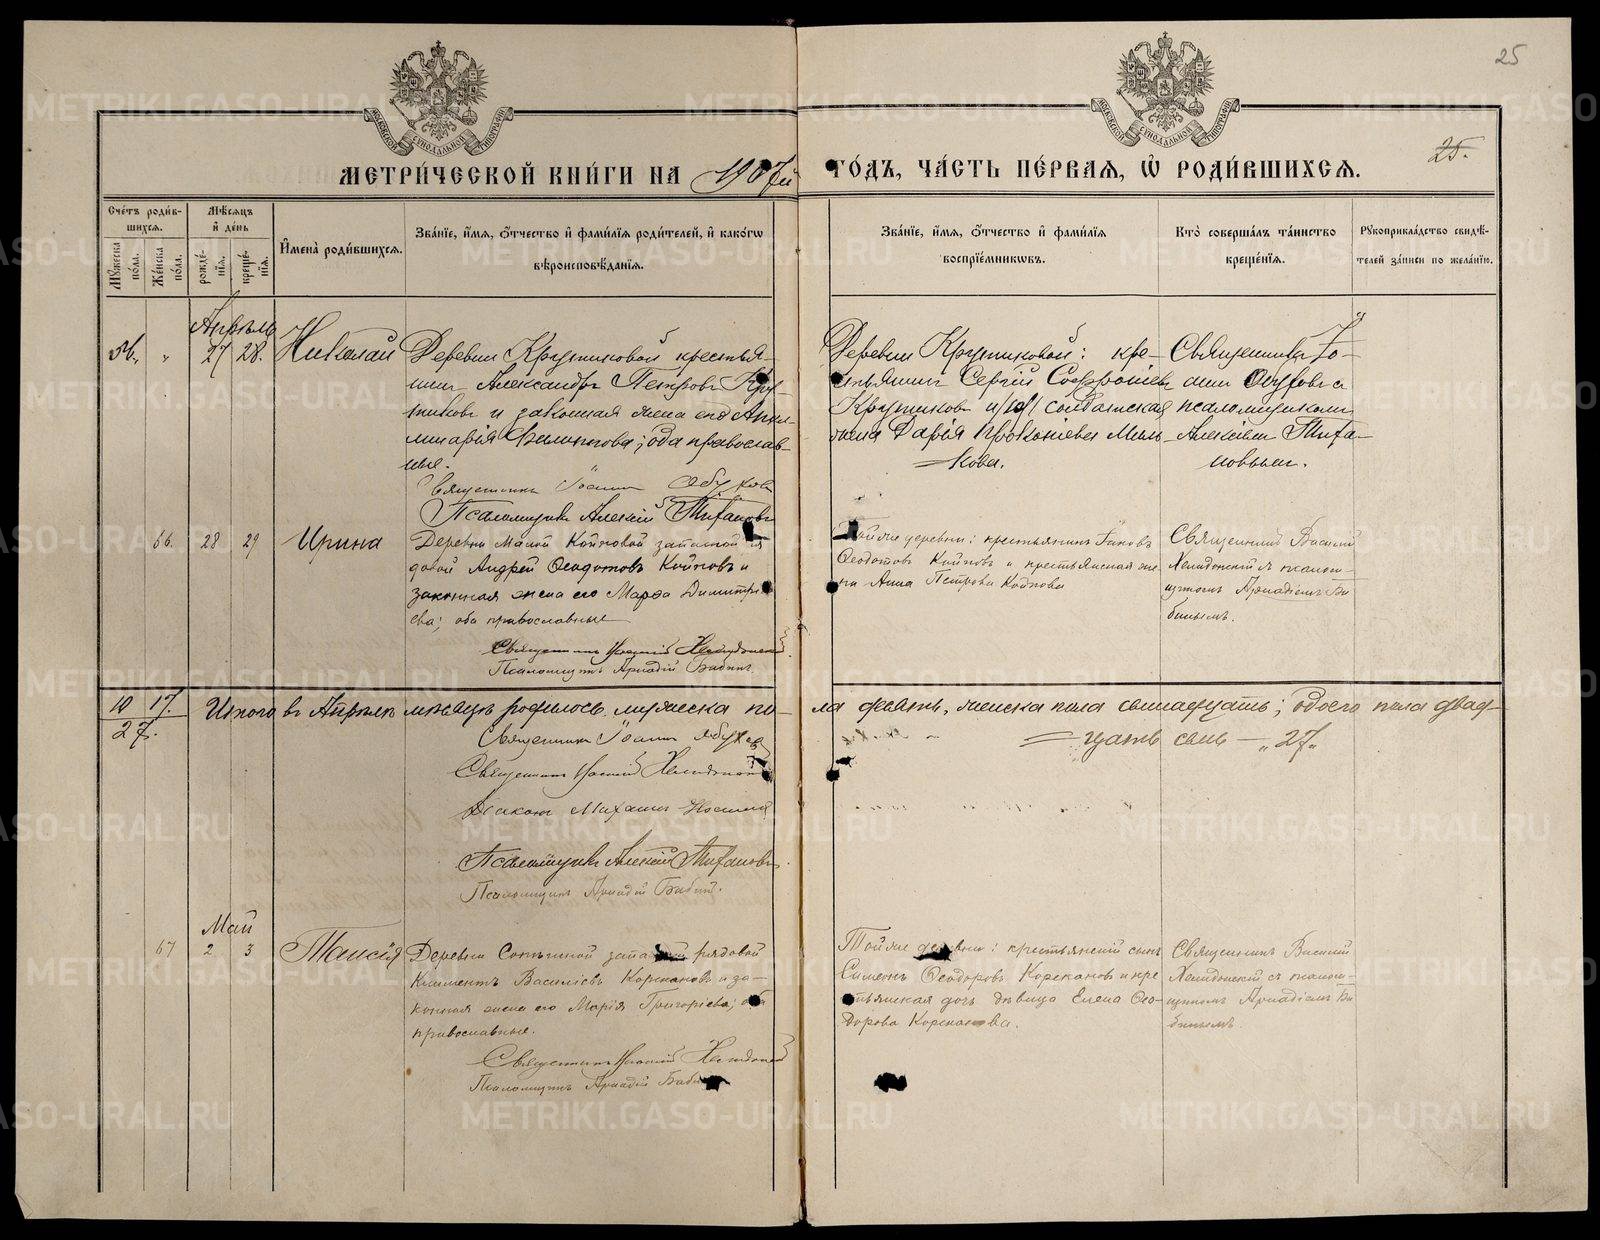 25
25.
МОСКОВСКОЙ СѴНОДАЛЬНОЙ ТИПОГРАФІИ
МОСКОВСКОЙ СѴНОДАЛЬНОЙ ТИПОГРАФІИ
МЕТРИ́ЧЕСКОЙ КНИ́ГИ НА 1907й ГО́ДЪ, ЧА́СТЬ ПЕ́РВАѦ, Ѡ҆ РОДИ́ВШИХСѦ.
Сче́тъ роди́в-
шихсѧ.
Мꙋ́жеска по́ла.
Же́нска по́ла.
Мѣ́сѧцъ
и҆ де́нь
рожде́-
нїѧ.
креще́-
нїѧ.
И҆мена̀ роди́вшихсѧ.
Зва́нїе, и҆́мѧ, ѻ҆́тчество и҆ фами́лїѧ роди́телей, и҆ како́гѡ
вѣроисповѣ́данїѧ.
Зва́нїе, и҆́мѧ, ѻ҆́тчество и҆ фами́лїѧ
воспрїе́мникѡвъ.
Кто̀ соверша́лъ та́инство
креще́нїѧ.
Рꙋкоприкла́дство свидѣ́-
телей за́писи по жела́нїю.
Апрѣль
27 28. Николай
Деревни Крутиковой крестья-
нинъ Александръ Петровъ Кру-
тиковъ и законная жена его Апол-
линарія Филиппова; оба православ-
ные.
Священникъ Іоаннъ
Псаломщикъ Алексій Тихановъ
Деревни Крутиковой: кре-
стьянинъ Сергій Софроніевъ
Крутиковъ и солдатская
жена Дарія Прокопіева Мель-
кова.
Священникъ Іо-
псаломщикомъ
Алексіемъ Тиха-
новымъ.
66. 28 29 Ирина
Деревни Малой Койновой запасной ря
довой Андрей Ѳеодотовъ Койновъ и
законная жена его Марѳа Димитрі
ева; оба православные
Священникъ Василій Хелидонскій
Псаломщикъ Аркадій Бабинъ.
Той же деревни: крестьянинъ Іаковъ
Ѳеодотовъ Койновъ и крестьянская же-
на Анна Петрова Койнова
Священникъ Василій
Хелидонскій съ псалом-
щикомъ Аркадіемъ Ба
бинымъ.
10 17.
27.
Итого въ Апрѣлѣ мѣсяцѣ родилось мужеска по-
ла десять, женска пола семнадцать; обоего пола двад-
цать семь — „27„
Священникъ Іоаннъ
Священникъ Василій Хелидонскій
Діаконъ Михаилъ
Псаломщикъ Алексій Тихановъ.
Псаломщикъ Аркадій Бабинъ.
Май
67 2 3 Таисія
Деревни Сотниной запасной рядовой
Климентъ Василіевъ Корскановъ и за-
конная жена его Марія Григоріева; оба
православные.
Священникъ Василій Хелидонскій
Псаломщикъ Аркадій Бабинъ
Той же деревни: крестьянскій сынъ
Симеонъ Ѳеодоровъ Корскановъ и кре
стьянская дочь дѣвица Елена Ѳео-
дорова Корсканова.
Священникъ Василій
Хелидонскій съ псалом-
щикомъ Аркадіемъ Ба
бинымъ.
METRIKI.GASO-URAL.RU